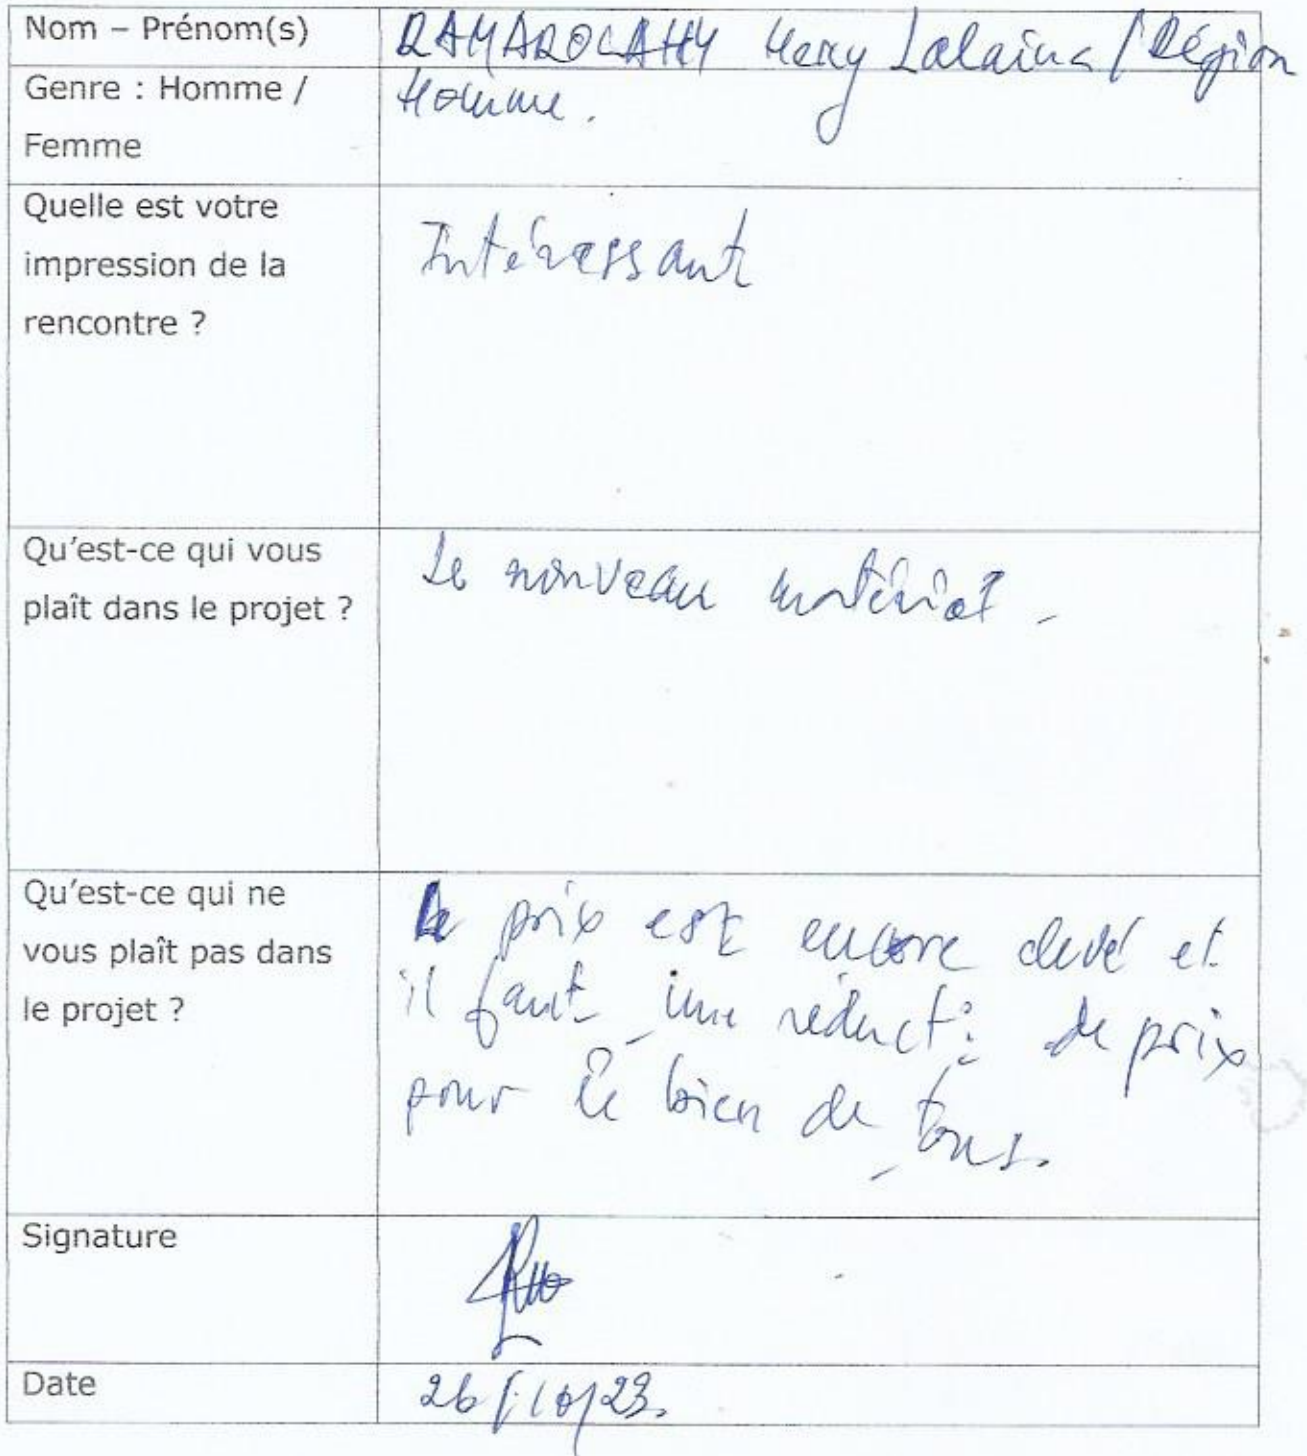 Nom – Prénom(s)
RAMAROLAHY Hery Lalaina / Région
Genre : Homme /
Femme
Homme.
Quelle est votre
impression de la
rencontre ?
Intéressant
Qu'est-ce qui vous
plaît dans le projet ?
Le nouveau matériel.
Qu'est-ce qui ne
vous plaît pas dans
le projet ?
Le prix est encore élevé et
il faut une réduct° de prix
pour le bien de tous.
Signature
Date
26/10/23.